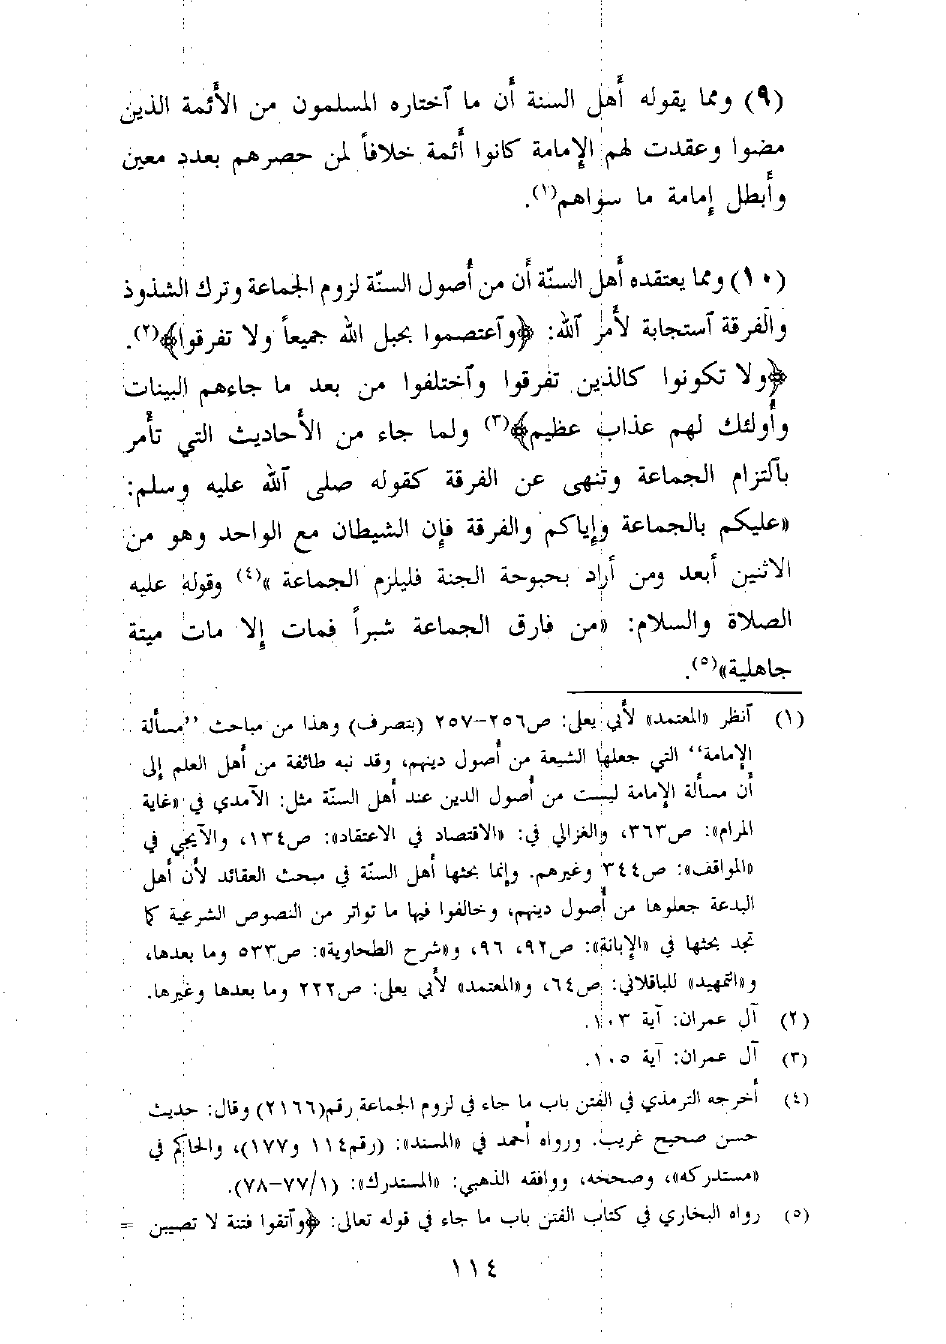 (٩) ومما يقوله أهل السنة أن ما آختاره المسلمون من الأئمة الذين
مضوا وعقدت لهم الإمامة كانوا أئمة خلافاً لمن حصرهم بعدد معين
وأبطل إمامة ما سواهم(١).
(١٠) ومما يعتقده أهل السنّة أن من أصول السنّة لزوم الجماعة وترك الشذوذ
والفرقة آستجابة لأمر آلله: ﴿وآعتصموا بحبل الله جميعاً ولا تفرقوا﴾(٢).
﴿ولا تكونوا كالذين تفرقوا وآختلفوا من بعد ما جاءهم البينات
وأولئك لهم عذاب عظيم﴾(٣) ولما جاء من الأحاديث التي تأمر
بآلتزام الجماعة وتنهى عن الفرقة كقوله صلى آلله عليه وسلم:
«عليكم بالجماعة وإياكم والفرقة فإن الشيطان مع الواحد وهو من
الاثنين أبعد ومن أراد بحبوحة الجنة فليلزم الجماعة»(٤) وقوله عليه
الصلاة والسلام: «من فارق الجماعة شبراً فمات إلا مات ميتة
جاهلية»(٥).
(١) آنظر «المعتمد» لأبي يعلى: ص٢٥٦-٢٥٧ (بتصرف) وهذا من مباحث ‘‘مسألة
الإمامة’’ التي جعلها الشيعة من أصول دينهم، وقد نبه طائفة من أهل العلم إلى
أن مسألة الإمامة ليست من أصول الدين عند أهل السنّة مثل: الآمدي في «غاية
المرام»: ص٣٦٣، والغزالي في: «الاقتصاد في الاعتقاد»: ص١٣٤، والآيجي في
«المواقف»: ص٣٤٤ وغيرهم. وإنما بحثها أهل السنّة في مبحث العقائد لأن أهل
البدعة جعلوها من أصول دينهم، وخالفوا فيها ما تواتر من النصوص الشرعية كما
تجد بحثها في «الإبانة»: ص٩٢، ٩٦، و«شرح الطحاوية»: ص٥٣٣ وما بعدها،
و«التمهيد» للباقلاني: ص٦٤، و«المعتمد» لأبي يعلى: ص٢٢٢ وما بعدها وغيرها.
(٢) آل عمران: آية ١٠٣.
(٣) آل عمران: آية ١٠٥.
(٤) أخرجه الترمذي في الفتن باب ما جاء في لزوم الجماعة رقم(٢١٦٦) وقال: حديث
حسن صحيح غريب. ورواه أحمد في «المسند»: (رقم١١٤ و١٧٧)، والحاكم في
«مستدركه»، وصححه، ووافقه الذهبي: «المستدرك»: (١/٧٧-٧٨).
(٥) رواه البخاري في كتاب الفتن باب ما جاء في قوله تعالى: ﴿وآتقوا فتنة لا تصيبن =
١١٤